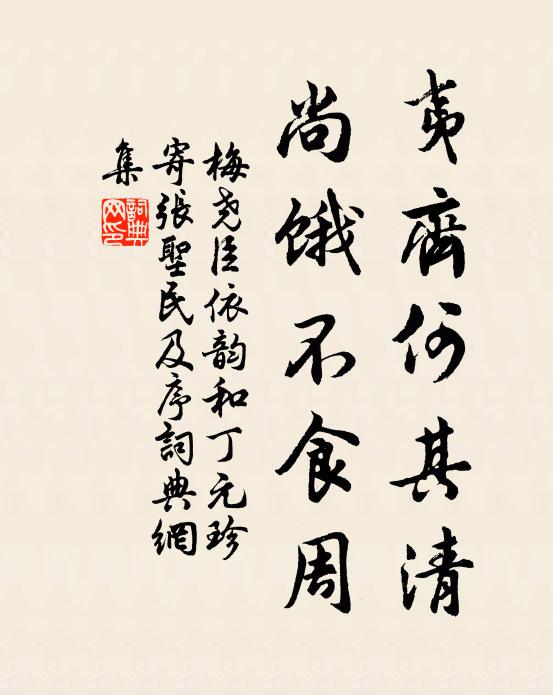 夷齊何其清
尚餓不食周
梅尧臣依韵和丁元珍
寄張聖民及序詞典網
集
詞典網印